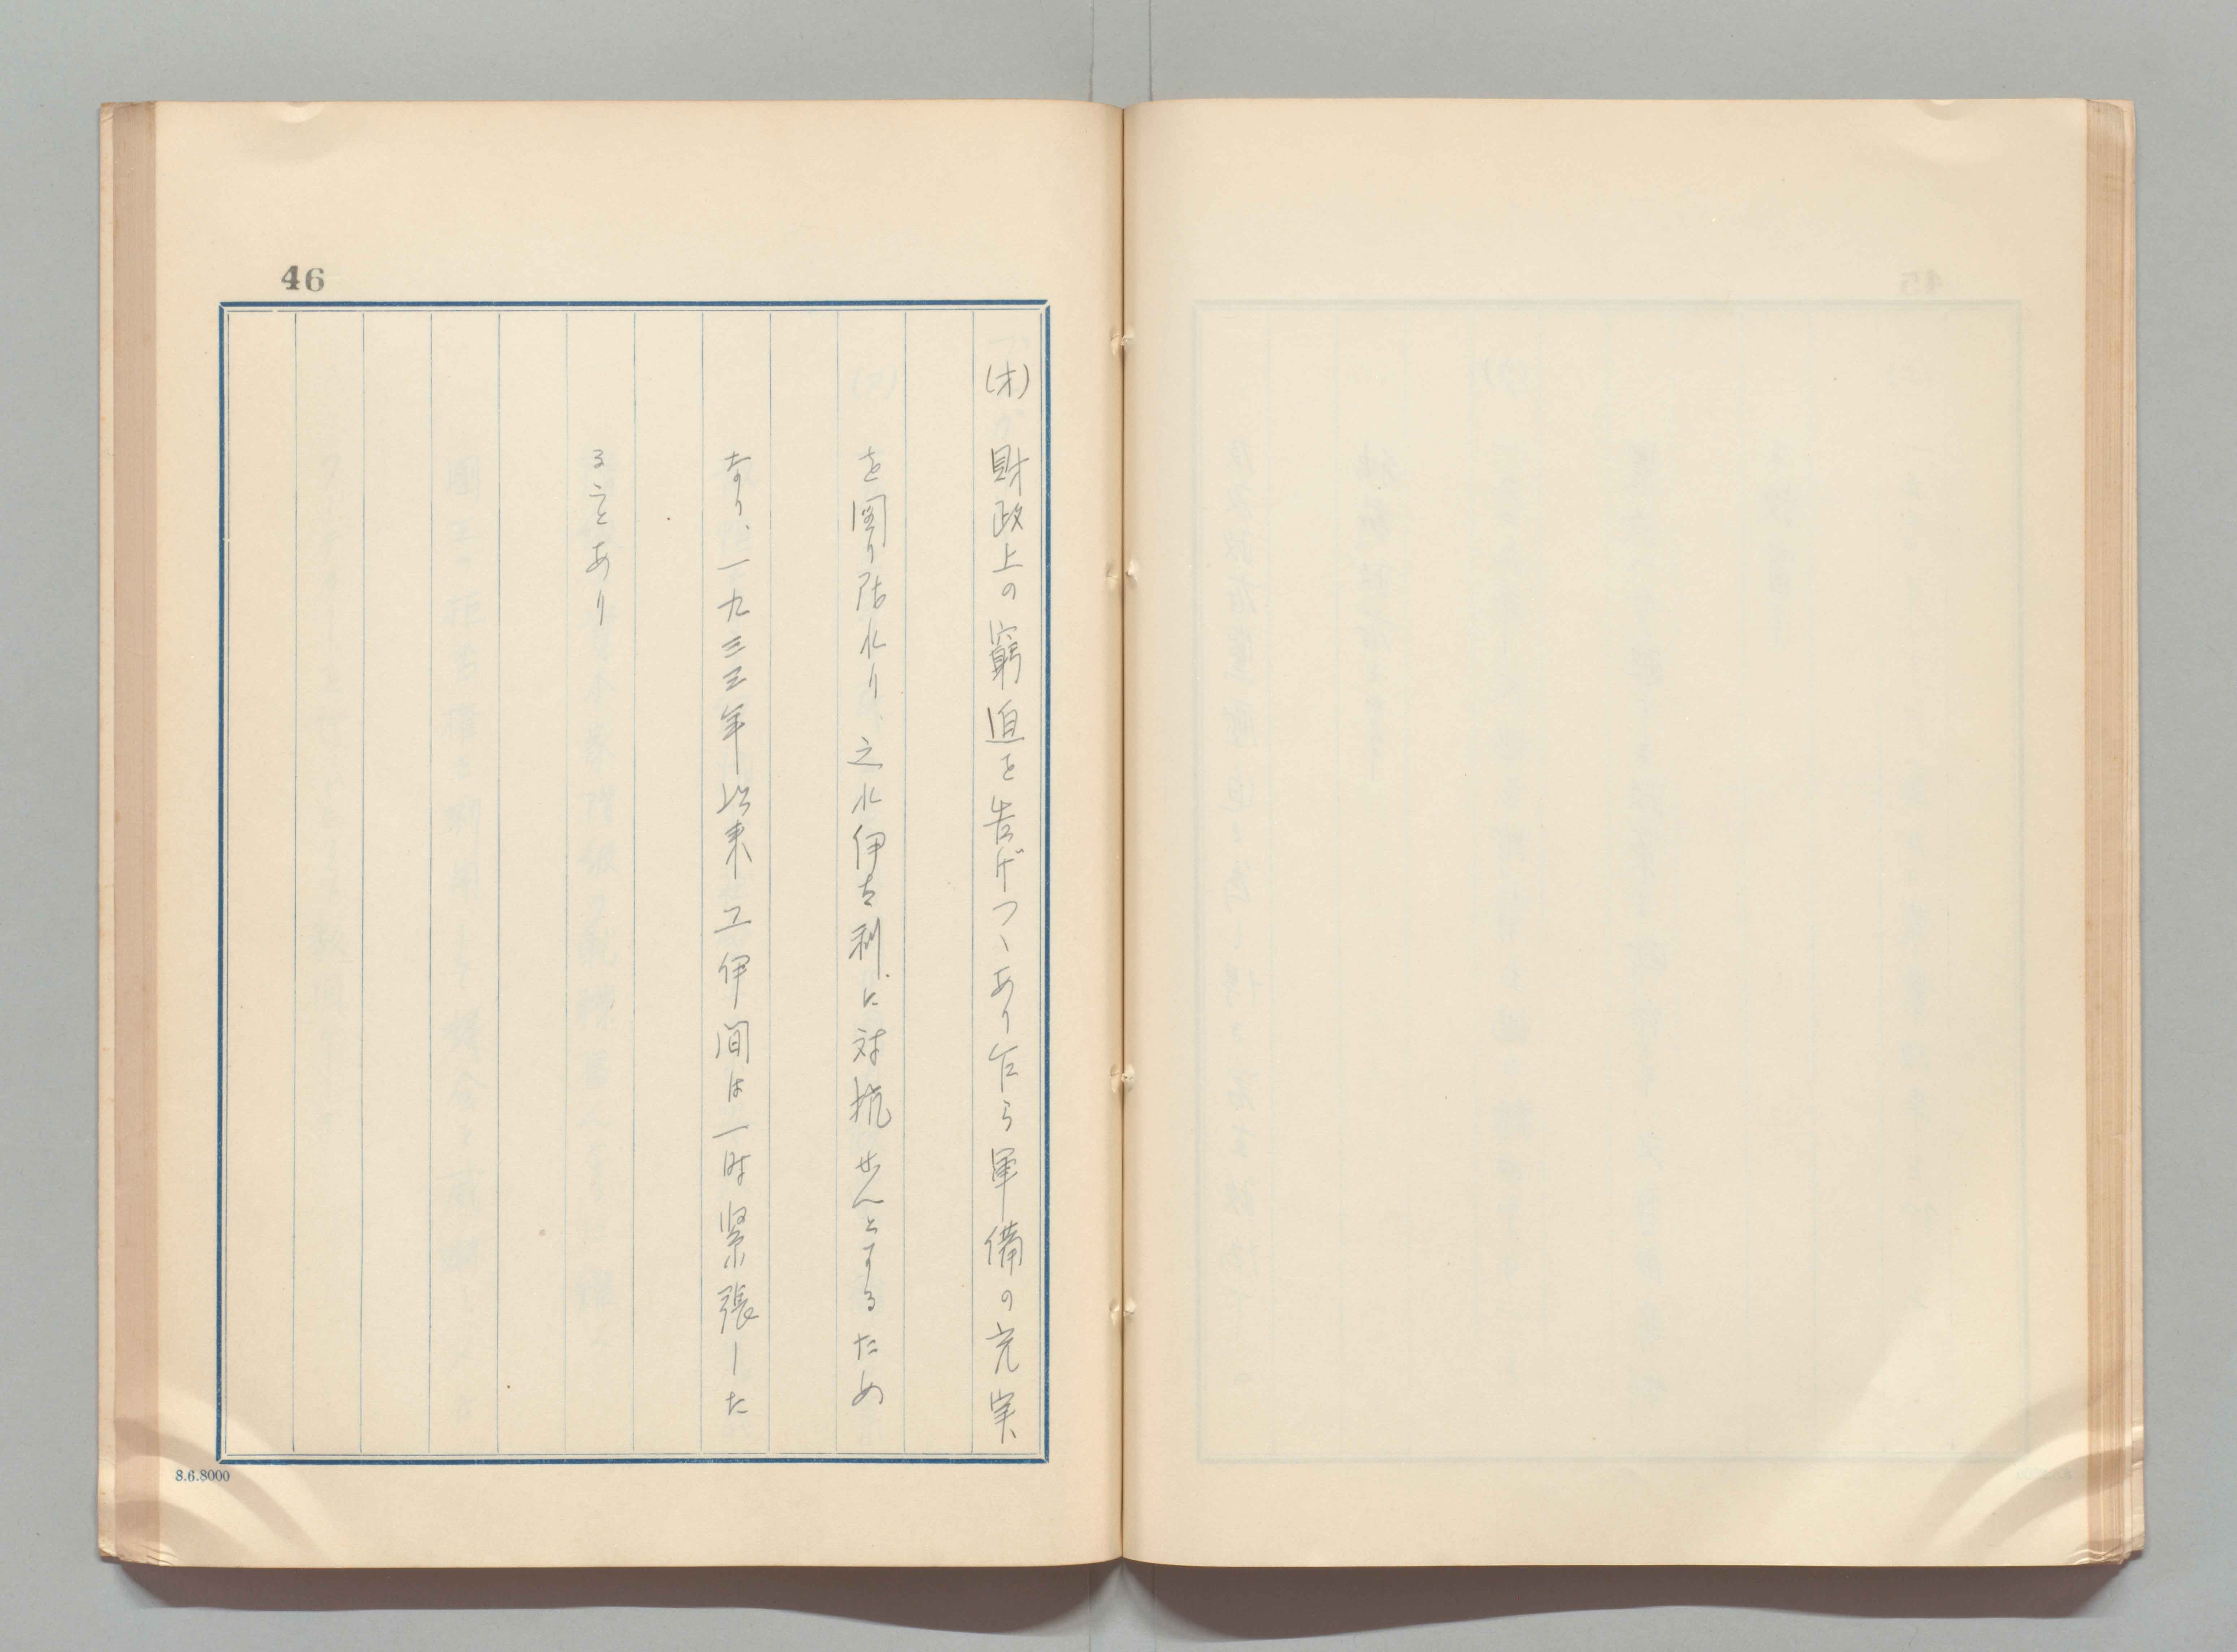 46
(ホ) 財政上の窮迫を告げつゝあり乍ら軍備の充実
を図り居れり、之れ伊太利に対抗せんとするため
なり、一九三三年以来エ伊間は一時緊張した
ることあり
8.6.8000